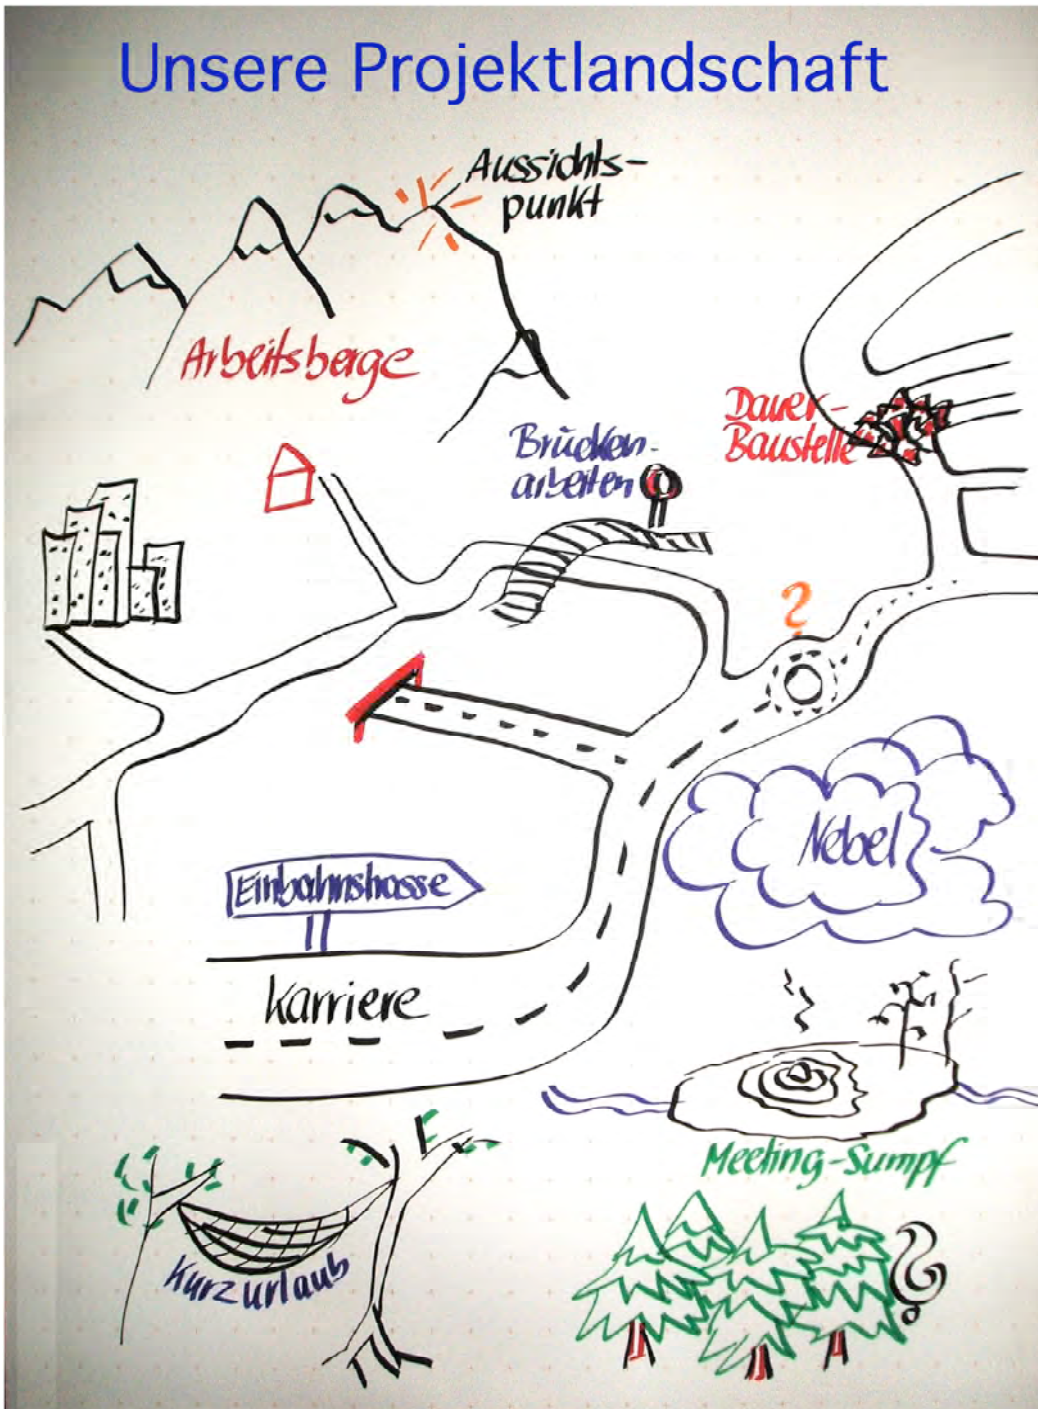 Unsere Projektlandschaft
Aussichts-
punkt
Arbeitsberge
Dauer-
Baustelle
Brücken-
arbeiten
?
Nebel
Einbahnstrasse
Karriere
Meeting-Sumpf
Kurzurlaub
?